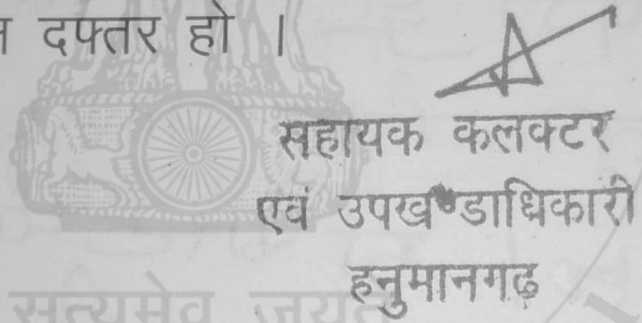 दफ्तर हो ।
सहायक कलक्टर
एवं उपखण्डाधिकारी
हनुमानगढ
सत्यमेव जयते